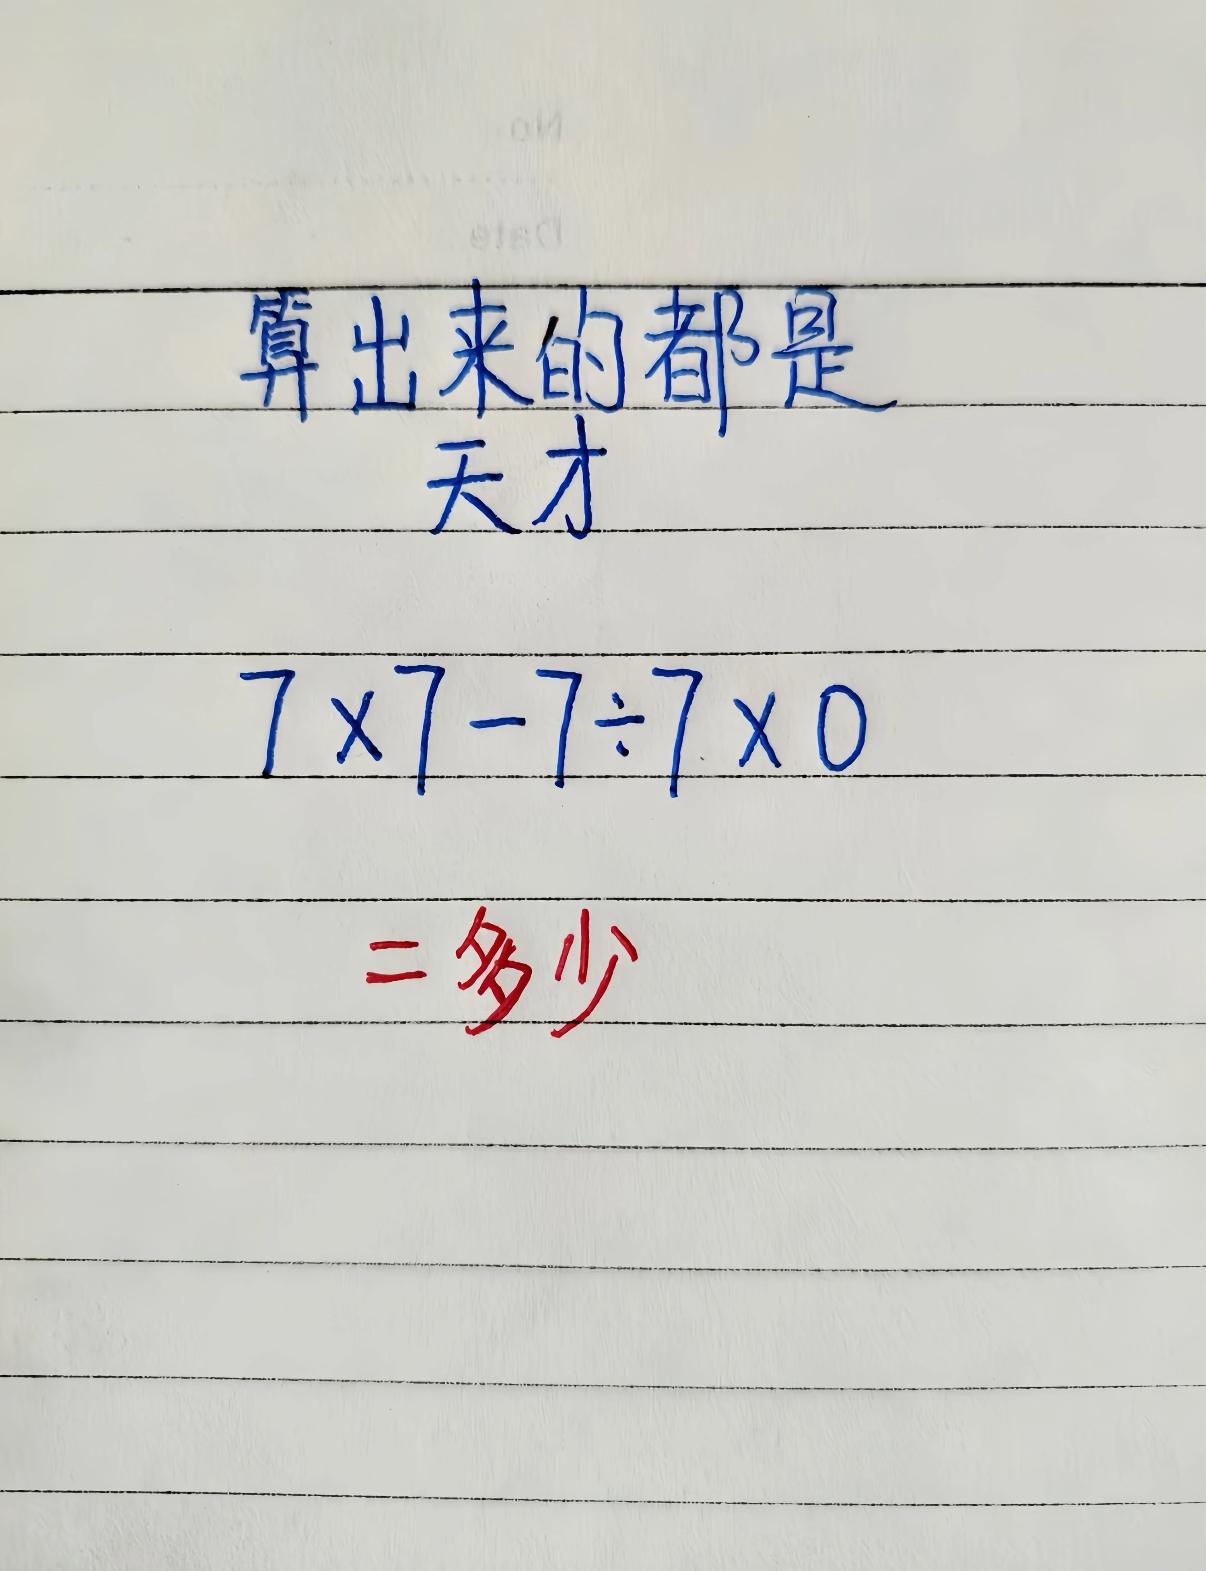 No.
Date
算出来的都是
天才
7×7-7÷7×0
=多少